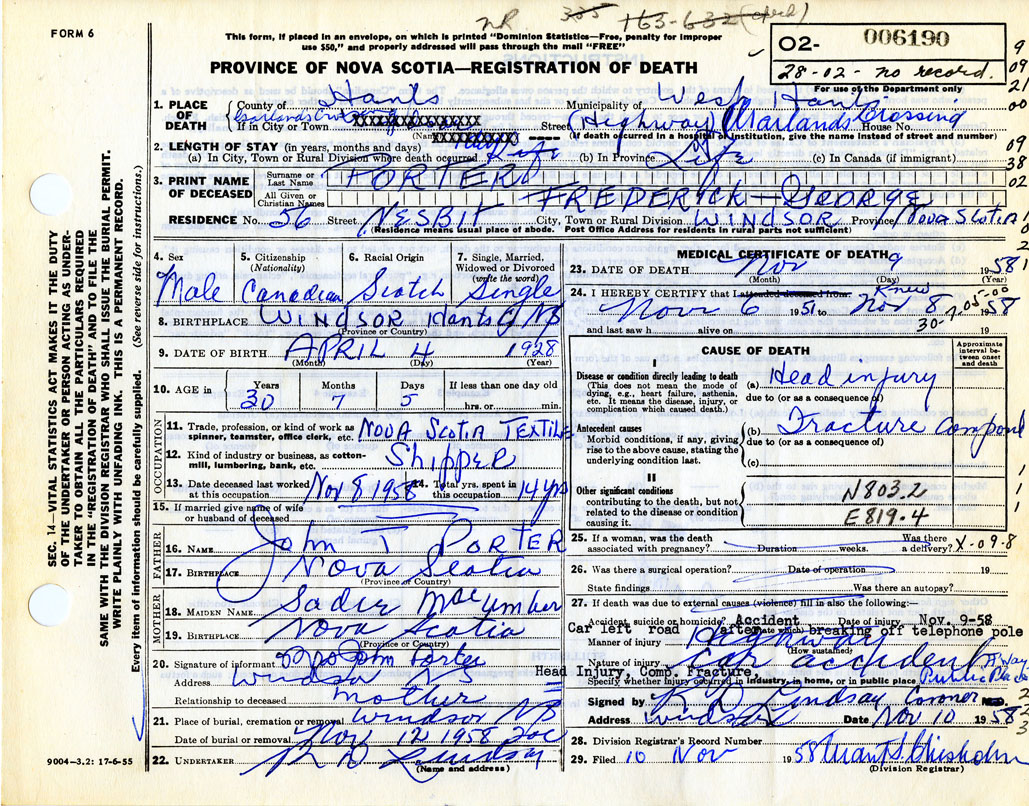 NR 335 163-632 (
FORM 6
This form, if placed in an envelope, on which is printed "Dominion Statistics—Free, penalty for improper
use $50," and properly addressed will pass through the mail "FREE"
02- 006190
28-02- no record.
For use of the Department only
PROVINCE OF NOVA SCOTIA—REGISTRATION OF DEATH
9
09
21
00
09
38
02
1. PLACE OF DEATH
County of Hants Municipality of West Hants
If in City or Town XXXXXXXXXXXXX (Name) Street (Highway) Garlands Crossing House No.
(If death occurred in a hospital or institution, give the name instead of street and number)
2. LENGTH OF STAY (in years, months and days)
(a) In City, Town or Rural Division where death occurred Life (b) In Province Life (c) In Canada (if immigrant)
3. PRINT NAME OF DECEASED
Surname or Last Name PORTER
All Given or Christian Names FREDERICK-GEORGE
RESIDENCE No. 56 Street NESBIT City, Town or Rural Division WINDSOR Province NOVA SCOTIA
(Residence means usual place of abode. Post Office Address for residents in rural parts not sufficient)
SEC. 14—VITAL STATISTICS ACT MAKES IT THE DUTY
OF THE UNDERTAKER OR PERSON ACTING AS UNDER-
TAKER TO OBTAIN ALL THE PARTICULARS REQUIRED
IN THE "REGISTRATION OF DEATH" AND TO FILE THE
SAME WITH THE DIVISION REGISTRAR WHO SHALL ISSUE THE BURIAL PERMIT.
WRITE PLAINLY WITH UNFADING INK. THIS IS A PERMANENT RECORD.
Every item of information should be carefully supplied. (See reverse side for instructions.)
4. Sex 5. Citizenship (Nationality) 6. Racial Origin 7. Single, Married, Widowed or Divorced (write the word)
Male Canadian Scotch Single
8. BIRTHPLACE WINDSOR Hants Co NS
(Province or Country)
9. DATE OF BIRTH APRIL 4 1928
(Month) (Day) (Year)
10. AGE in Years Months Days If less than one day old
30 7 5 hrs. or min.
OCCUPATION
11. Trade, profession, or kind of work as spinner, teamster, office clerk, etc. NOVA SCOTIA TEXTILE
12. Kind of industry or business, as cotton-mill, lumbering, bank, etc. SHIPPER
13. Date deceased last worked at this occupation Nov 8 1958 14. Total yrs. spent in this occupation 14 yrs
15. If married give name of wife or husband of deceased
FATHER
16. NAME John T PORTER
17. BIRTHPLACE Nova Scotia
(Province or Country)
MOTHER
18. MAIDEN NAME Sadie Macumber
19. BIRTHPLACE Nova Scotia
(Province or Country)
20. Signature of informant Mrs John Porter
Address Windsor NS
Relationship to deceased mother
21. Place of burial, cremation or removal Windsor NS
Date of burial or removal Nov 12 1958
22. UNDERTAKER Lindsay
(Name and address)
9004—3.2: 17-6-55
MEDICAL CERTIFICATE OF DEATH
23. DATE OF DEATH Nov 9 1958
(Month) (Day) (Year)
24. I HEREBY CERTIFY that I attended deceased from: knew
Nov 6 1951 to Nov 8 1958
and last saw h alive on 19
CAUSE OF DEATH
Approximate interval between onset and death
I
Disease or condition directly leading to death
(This does not mean the mode of dying, e.g., heart failure, asthenia, etc. It means the disease, injury, or complication which caused death.)
(a) Head injury
due to (or as a consequence of)
Antecedent causes
Morbid conditions, if any, giving rise to the above cause, stating the underlying condition last.
(b) Fracture compound
due to (or as a consequence of)
(c)
II
Other significant conditions
contributing to the death, but not related to the disease or condition causing it.
N803.2
E819.4
25. If a woman, was the death associated with pregnancy? Duration weeks. Was there a delivery? X-09-8
26. Was there a surgical operation? Date of operation 19
State findings Was there an autopsy?
27. If death was due to external causes (violence) fill in also the following:—
Accident, suicide or homicide? Accident Date of injury Nov. 9-58
Car left road after breaking off telephone pole
Manner of injury Highway
(How sustained)
Nature of injury Car accident
Head Injury, Comp. Fracture,
Specify whether injury occurred in industry, in home, or in public place H'way Public Place
Signed by Lindsay Coroner M.D.
Address Windsor Date Nov 10 1958
28. Division Registrar's Record Number
29. Filed 10 Nov 1958 Stuart S. Chisholm
(Division Registrar)